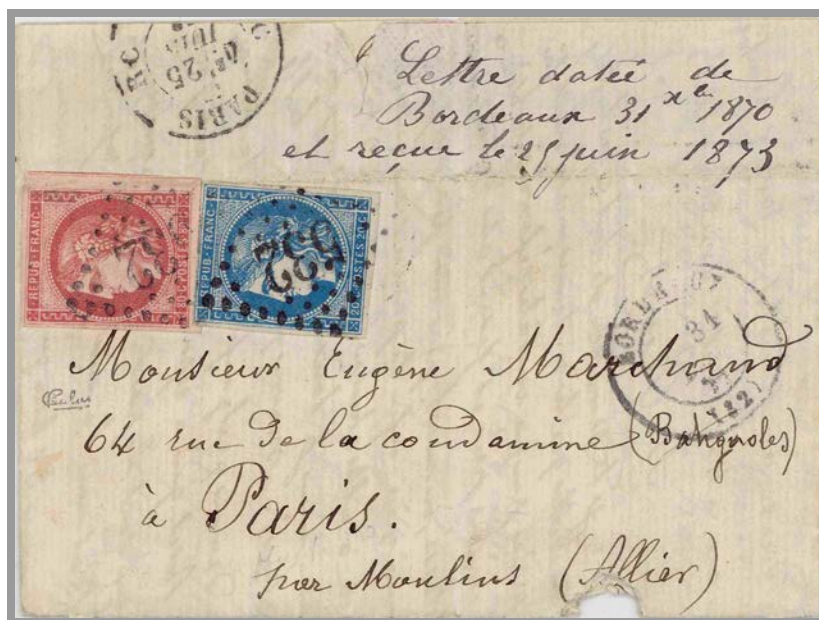 PARIS
25
JUIN
Lettre datée de
Bordeaux 31 xbre 1870
et reçue le 25 juin 1873
REPUB · FRANC
REPUB · FRANC
POSTES 20 C
532
BORDEAUX
31
Monsieur Eugène Marchand
64 rue de la condamine (Batignoles)
à Paris.
par Moulins (Allier)